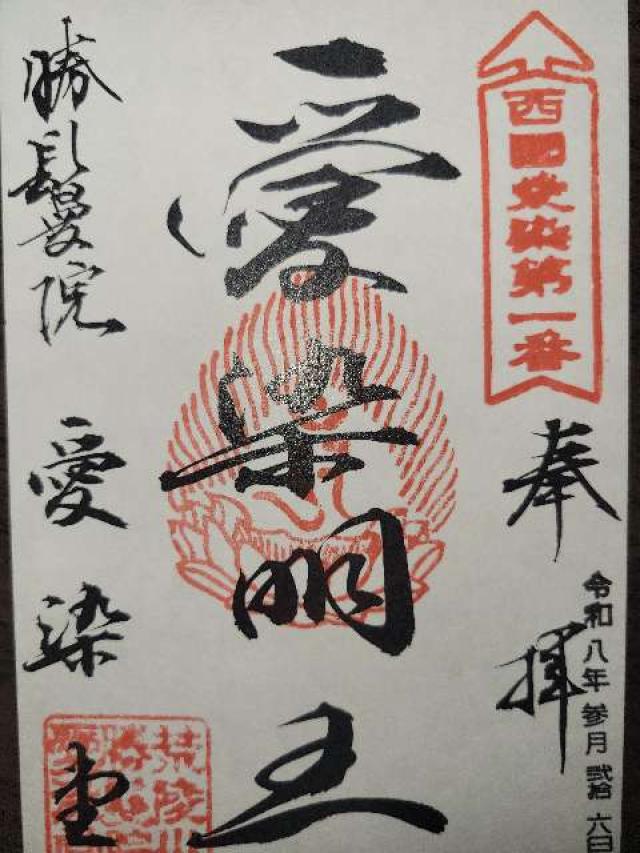 西國愛染第一番
奉拝
令和八年参月弐拾六日
愛染明王
勝鬘院
愛染堂